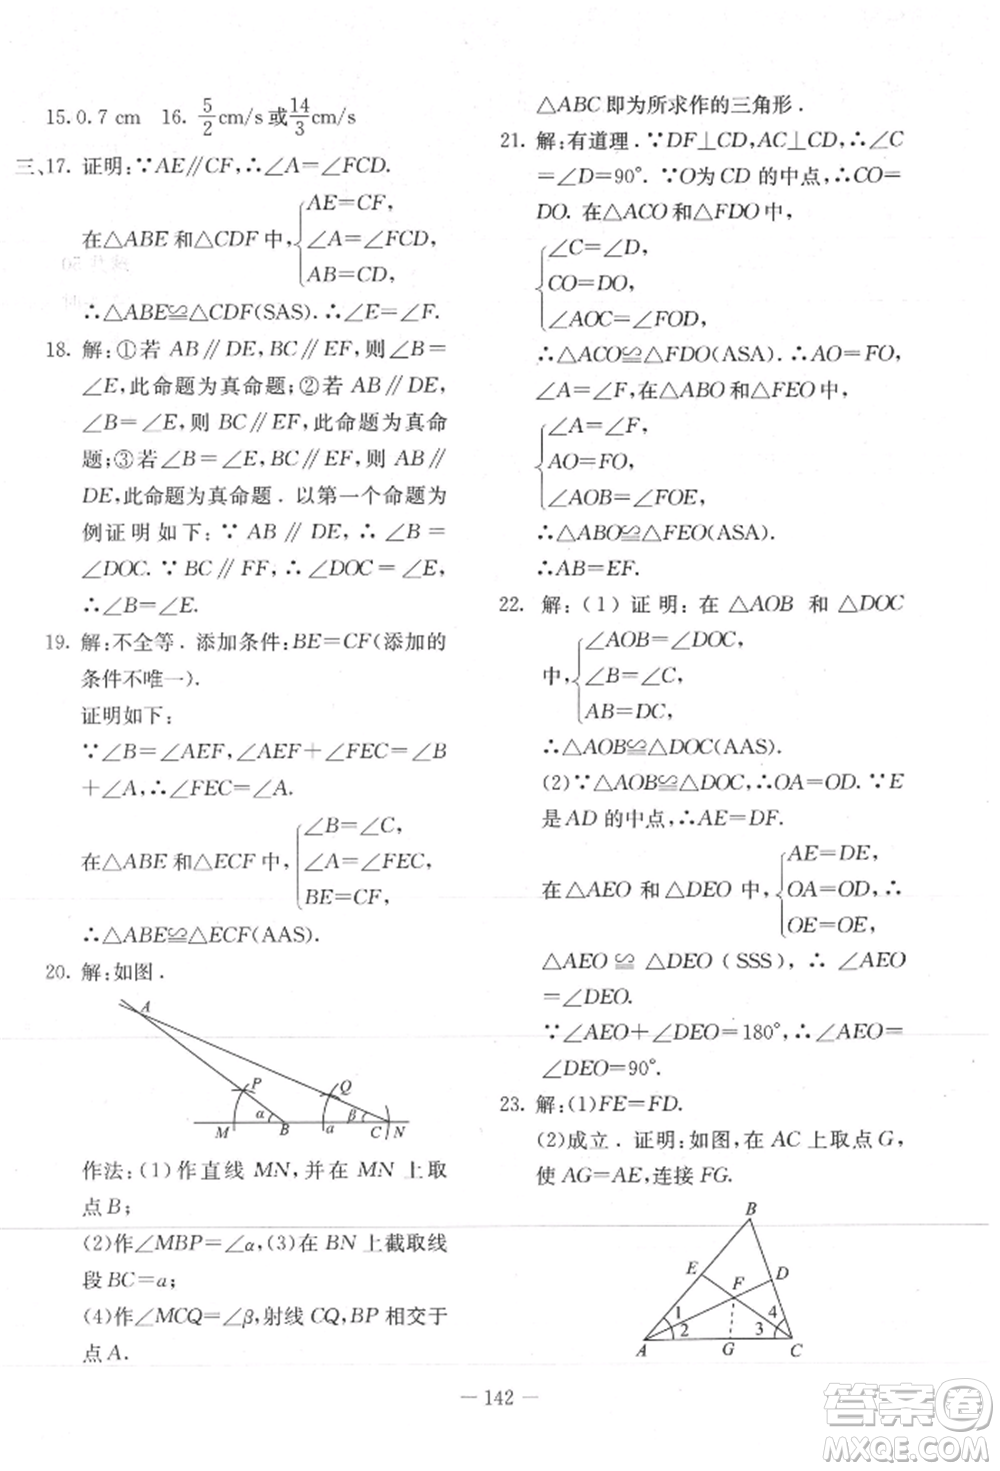 15. 0.7 cm 16. 5/2 cm/s或14/3 cm/s
三、17. 证明:∵AE∥CF,∴∠A=∠FCD.
在△ABE和△CDF中,{AE=CF,
∠A=∠FCD,
AB=CD,
∴△ABE≌△CDF(SAS).∴∠E=∠F.
18. 解:①若AB∥DE,BC∥EF,则∠B=
∠E,此命题为真命题;②若AB∥DE,
∠B=∠E,则BC∥EF,此命题为真命
题;③若∠B=∠E,BC∥EF,则AB∥
DE,此命题为真命题.以第一个命题为
例证明如下:∵AB∥DE,∴∠B=
∠DOC.∵BC∥FF,∴∠DOC=∠E,
∴∠B=∠E.
19. 解:不全等.添加条件:BE=CF(添加的
条件不唯一).
证明如下:
∵∠B=∠AEF,∠AEF+∠FEC=∠B
+∠A,∴∠FEC=∠A.
在△ABE和△ECF中,{∠B=∠C,
∠A=∠FEC,
BE=CF,
∴△ABE≌△ECF(AAS).
20. 解:如图.
A
P
Q
α
β
M
B
a
C
N
作法:(1)作直线MN,并在MN上取
点B;
(2)作∠MBP=∠α,(3)在BN上截取线
段BC=a;
(4)作∠MCQ=∠β,射线CQ,BP相交于
点A.
△ABC即为所求作的三角形.
21. 解:有道理.∵DF⊥CD,AC⊥CD,∴∠C
=∠D=90°.∵O为CD的中点,∴CO=
DO.在△ACO和△FDO中,
{∠C=∠D,
CO=DO,
∠AOC=∠FOD,
∴△ACO≌△FDO(ASA).∴AO=FO,
∠A=∠F,在△ABO和△FEO中,
{∠A=∠F,
AO=FO,
∠AOB=∠FOE,
∴△ABO≌△FEO(ASA).
∴AB=EF.
22. 解:(1)证明:在△AOB和△DOC
中,{∠AOB=∠DOC,
∠B=∠C,
AB=DC,
∴△AOB≌△DOC(AAS).
(2)∵△AOB≌△DOC,∴OA=OD.∵E
是AD的中点,∴AE=DF.
在△AEO和△DEO中,{AE=DE,
OA=OD,∴
OE=OE,
△AEO≌△DEO(SSS),∴∠AEO
=∠DEO.
∵∠AEO+∠DEO=180°,∴∠AEO=
∠DEO=90°.
23. 解:(1)FE=FD.
(2)成立.证明:如图,在AC上取点G,
使AG=AE,连接FG.
B
E
F
D
1
2
3
4
A
G
C
— 142 —
答案圈
MXQE.COM